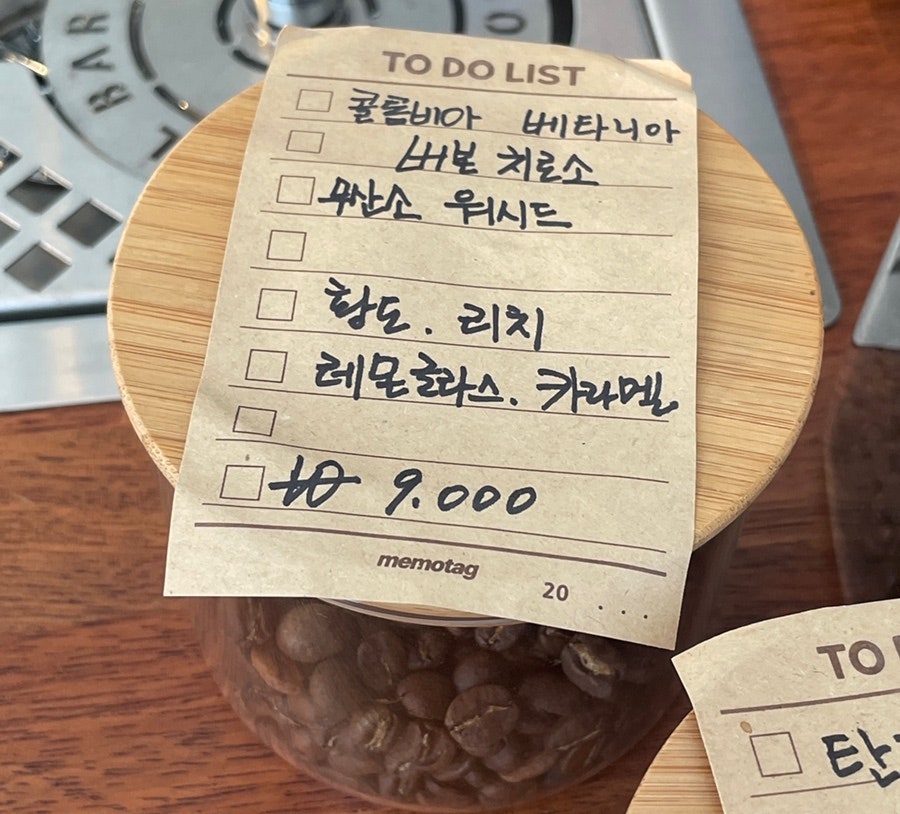 BAR
TO DO LIST
콜롬비아 베타니아
버본 치로소
무산소 워시드
황도. 리치
레몬글라스. 카라멜
10 9.000
memotag
20 . . .
TO
탄